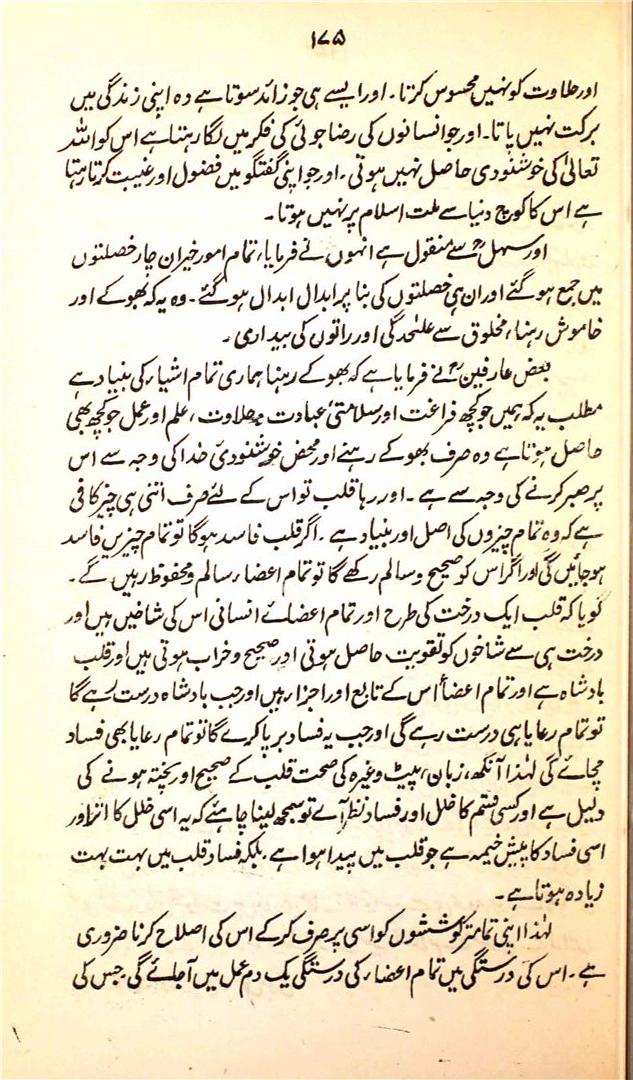 ۱۷۵
اور حلاوت کو نہیں محسوس کرتا۔ اور ایسے ہی جو زائد سوتا ہے وہ اپنی زندگی میں
برکت نہیں پاتا۔ اور جو انسانوں کی رضا جوئی کی فکر میں لگا رہتا ہے اس کو اللہ
تعالیٰ کی خوشنودی حاصل نہیں ہوتی۔ اور جو اپنی گفتگو میں فضول اور غیبت کرتا رہتا
ہے اس کا کوچ دنیا سے ملت اسلام پر نہیں ہوتا۔
اور سہلؒ سے منقول ہے انہوں نے فرمایا، تمام امور خیر ان چار خصلتوں
میں جمع ہو گئے اور ان ہی خصلتوں کی بنا پر ابدال ابدال ہو گئے۔ وہ یہ کہ بھوکے اور
خاموش رہنا، مخلوق سے علیٰحدگی اور راتوں کی بیداری۔
بعض عارفینؒ نے فرمایا ہے کہ بھوکے رہنا ہماری تمام اشیاء کی بنیاد ہے
مطلب یہ کہ ہمیں جو کچھ فراغت اور سلامتی عبادت حلاوت، علم اور عمل جو کچھ بھی
حاصل ہوتا ہے وہ صرف بھوکے رہنے اور محض خوشنودیٔ خدا کی وجہ سے اس
پر صبر کرنے کی وجہ سے ہے۔ اور رہا قلب تو اس کے لئے صرف اتنی ہی چیز کافی
ہے کہ وہ تمام چیزوں کی اصل اور بنیاد ہے۔ اگر قلب فاسد ہوگا تو تمام چیزیں فاسد
ہو جائیں گی اور اگر اس کو صحیح و سالم رکھے گا تو تمام اعضاء سالم و محفوظ رہیں گے۔
گویا کہ قلب ایک درخت کی طرح اور تمام اعضائے انسانی اس کی شاخیں ہیں اور
درخت ہی سے شاخوں کو تقویت حاصل ہوتی اور صحیح و خراب ہوتی ہیں اور قلب
بادشاہ ہے اور تمام اعضأ اس کے تابع اور اجزاء ہیں اور جب بادشاہ درست رہے گا
تو تمام رعایا ہی درست رہے گی اور جب یہ فساد برپا کرے گا تو تمام رعایا بھی فساد
مچائے گی لہٰذا آنکھ، زبان، پیٹ وغیرہ کی صحت قلب کے صحیح اور پختہ ہونے کی
دلیل ہے اور کسی قسم کا خلل اور فساد نظر آئے تو سمجھ لینا چاہئے کہ یہ اسی خلل کا اثر اور
اسی فساد کا پیش خیمہ ہے جو قلب میں پیدا ہوا ہے بلکہ فساد قلب میں بہت بہت
زیادہ ہوتا ہے۔
لہٰذا اپنی تمامتر کوششوں کو اسی پر صرف کر کے اس کی اصلاح کرنا ضروری
ہے۔ اس کی درستگی میں تمام اعضاء کی درستگی یک دم عمل میں آ جائے گی جس کی